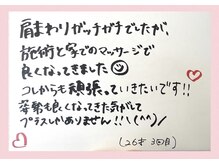 肩まわりガッチガチでしたが、
施術と家でのマッサージで
良くなってきました☺
コレからも頑張っていきたいです!!
姿勢も良くなってきた気がして
プラスしかありません!!\(^^)/
(26才 3回目)